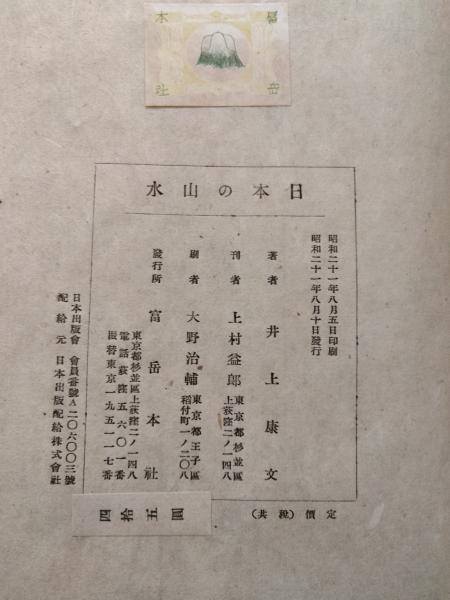 富岳
本社
日本の山水
昭和二十一年八月五日印刷
昭和二十一年八月十日發行
著者 井上康文
刊者 上村益郎
東京都杉並區
上荻窪二ノ一四八
刷者 大野治輔
東京都王子區
稻付町一ノ二〇八
發行所 富岳本社
東京都杉並區上荻窪二ノ一四八
電話荻窪五六〇一番
振替東京一九五一一七番
定價(税共)
四拾五圓
日本出版會 會員番號A二〇六〇〇三號
配給元 日本出版配給株式會社